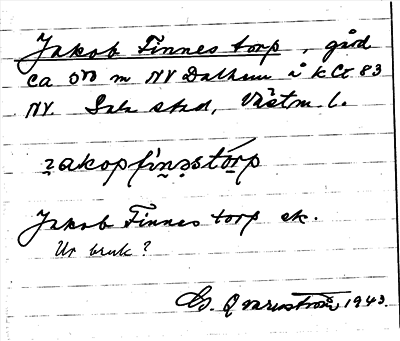 Jakob Finnes torp, gård
ca 500 m NV Dalhem i k Ct 83
NV. Sala stad, Västm. l.
ȷakopfìnəstórp
Jakob Finnes torp ek.
Ur bruk?
G. Qvarnström 1943.